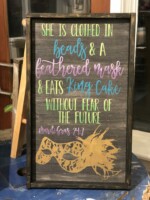 SHE IS CLOTHED IN
beads & A
feathered Mask
& EATS King Cake
WITHOUT FEAR OF
THE FUTURE
Mardi Gras 24:7